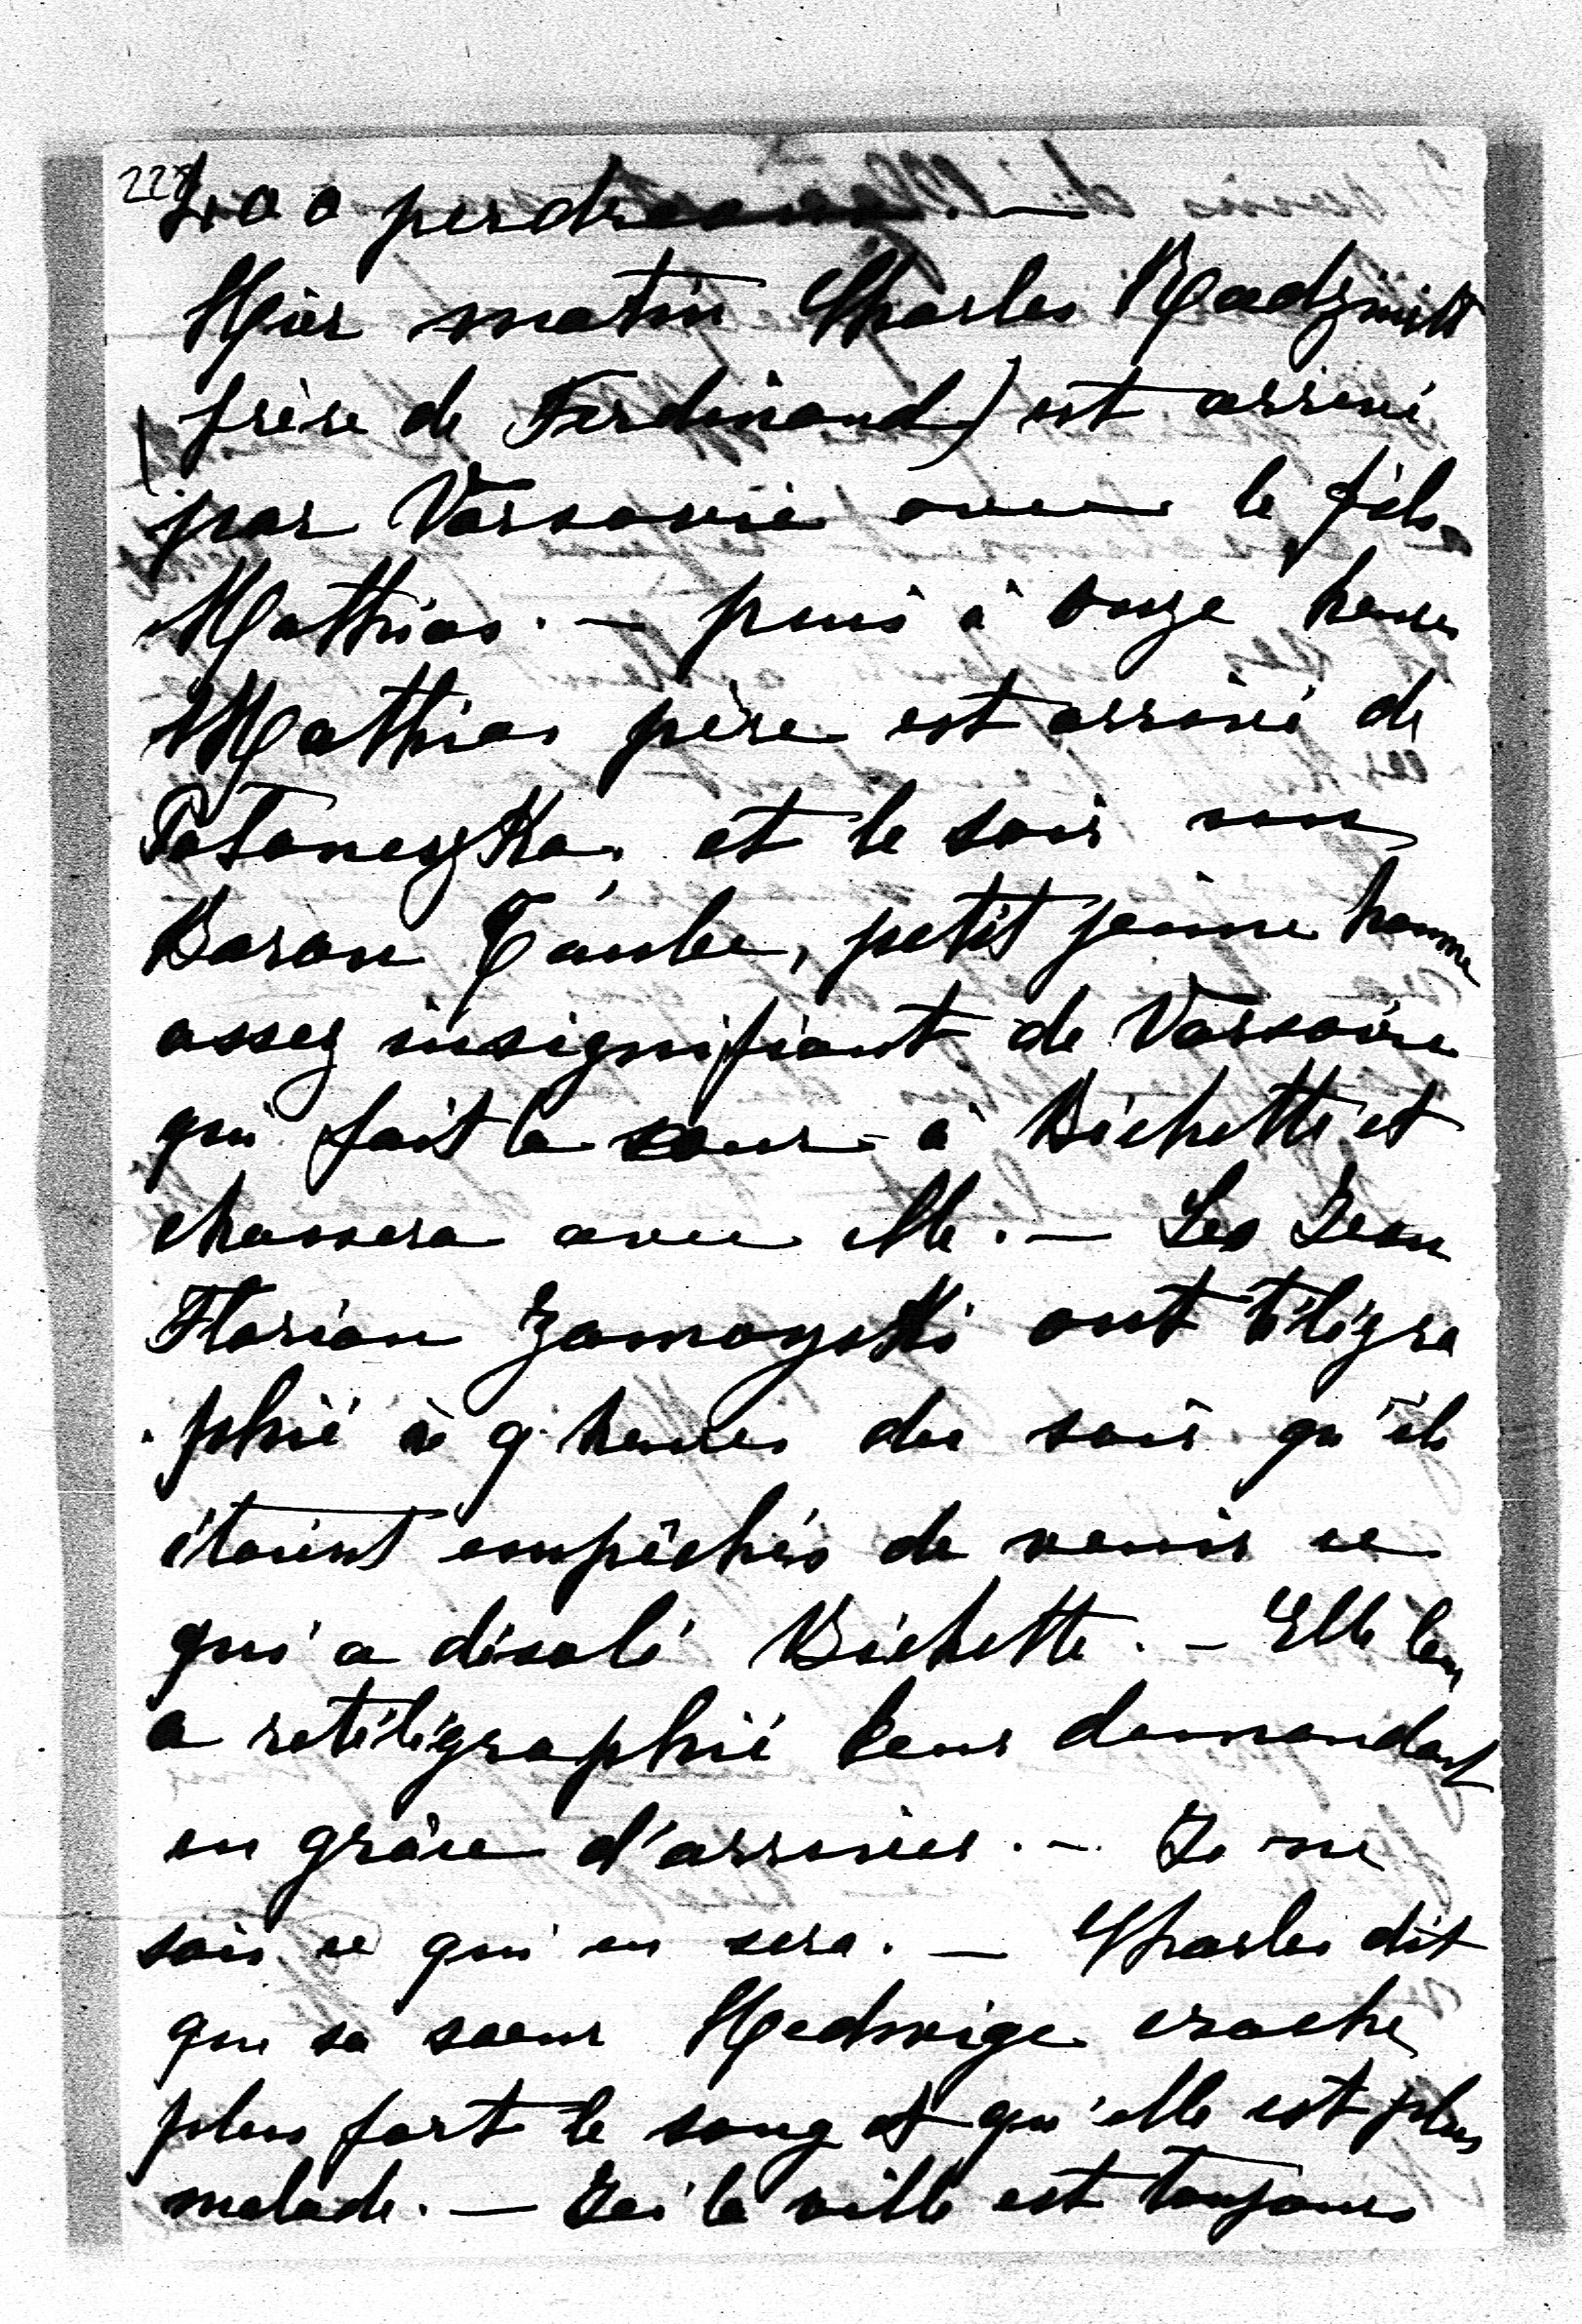 228
220 perdreaux. —
Hier matin Charles Radziwill
(frère de Ferdinand) est arrivé
par Varsovie avec le fils
Mathias. — puis à onze heures
Mathias père est arrivé de
et le soir un
Baron Taube, petit jeune homme
assez insignifiant de Varsovie
qui fait la cour à Bichette et
chassera avec elle. — Les Jean
Florian Zamoyski ont télégra
phié à 9 heures du soir qu'ils
étaient empêchés de venir ce
qui a désolé Bichette. — Elle leur
a retélégraphié leur demandant
en grâce d'arriver. — Je ne
sais ce qui en sera. — Charles dit
que sa soeur Hedwige crache
plus fort le sang et qu'elle est plus
malade. — Ici la ville est toujours